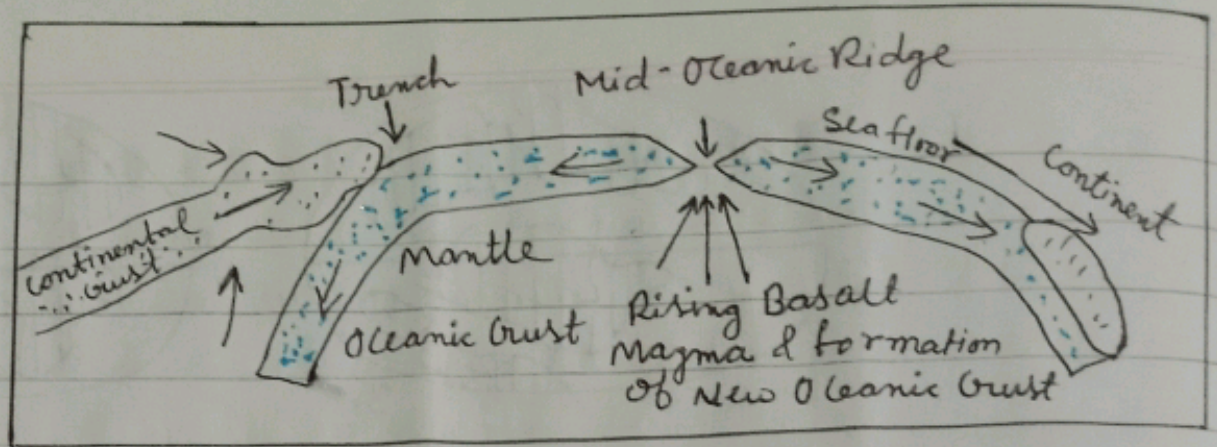 Trench
Mid-Oceanic Ridge
Sea floor
Continent
Continental
Crust
Mantle
Oceanic Crust
Rising Basalt
Magma & formation
of New Oceanic Crust